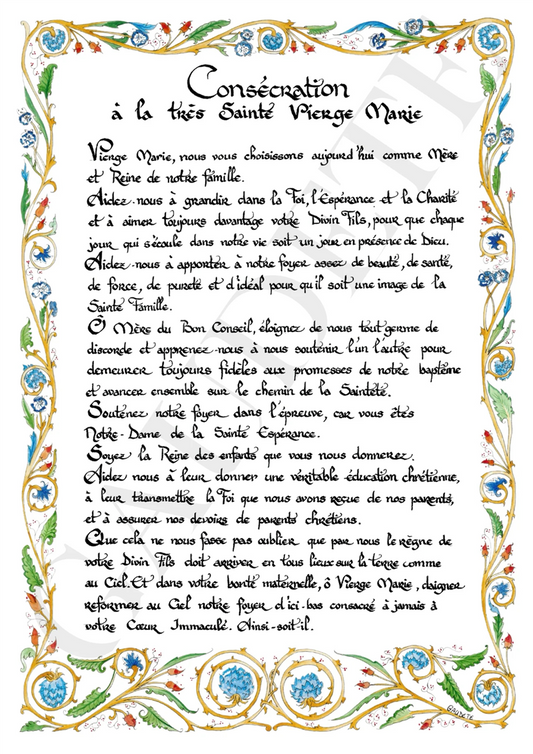 Consécration
à la très Sainte Vierge Marie
Vierge Marie, nous vous choisissons aujourd'hui comme Mère
et Reine de notre famille.
Aidez-nous à grandir dans la Foi, l'Espérance et la Charité
et à aimer toujours davantage votre Divin Fils, pour que chaque
jour qui s'écoule dans notre vie soit un jour en présence de Dieu.
Aidez-nous à apporter à notre foyer assez de beauté, de santé,
de force, de pureté et d'idéal pour qu'il soit une image de la
Sainte Famille.
Ô Mère du Bon Conseil, éloignez de nous tout germe de
discorde et apprenez-nous à nous soutenir l'un l'autre pour
demeurer toujours fidèles aux promesses de notre baptême
et avancer ensemble sur le chemin de la Sainteté.
Soutenez notre foyer dans l'épreuve, car vous êtes
Notre-Dame de la Sainte Espérance.
Soyez la Reine des enfants que vous nous donnerez.
Aidez nous à leur donner une véritable éducation chrétienne,
à leur transmettre la Foi que nous avons reçue de nos parents,
et à assurer nos devoirs de parents chrétiens.
Que cela ne nous fasse pas oublier que par nous le règne de
votre Divin Fils doit arriver en tous lieux sur la terre comme
au Ciel. Et dans votre bonté maternelle, ô Vierge Marie, daignez
reformer au Ciel notre foyer d'ici-bas consacré à jamais à
votre Cœur Immaculé. Ainsi-soit-il.
GAUDETE
GAUDETE